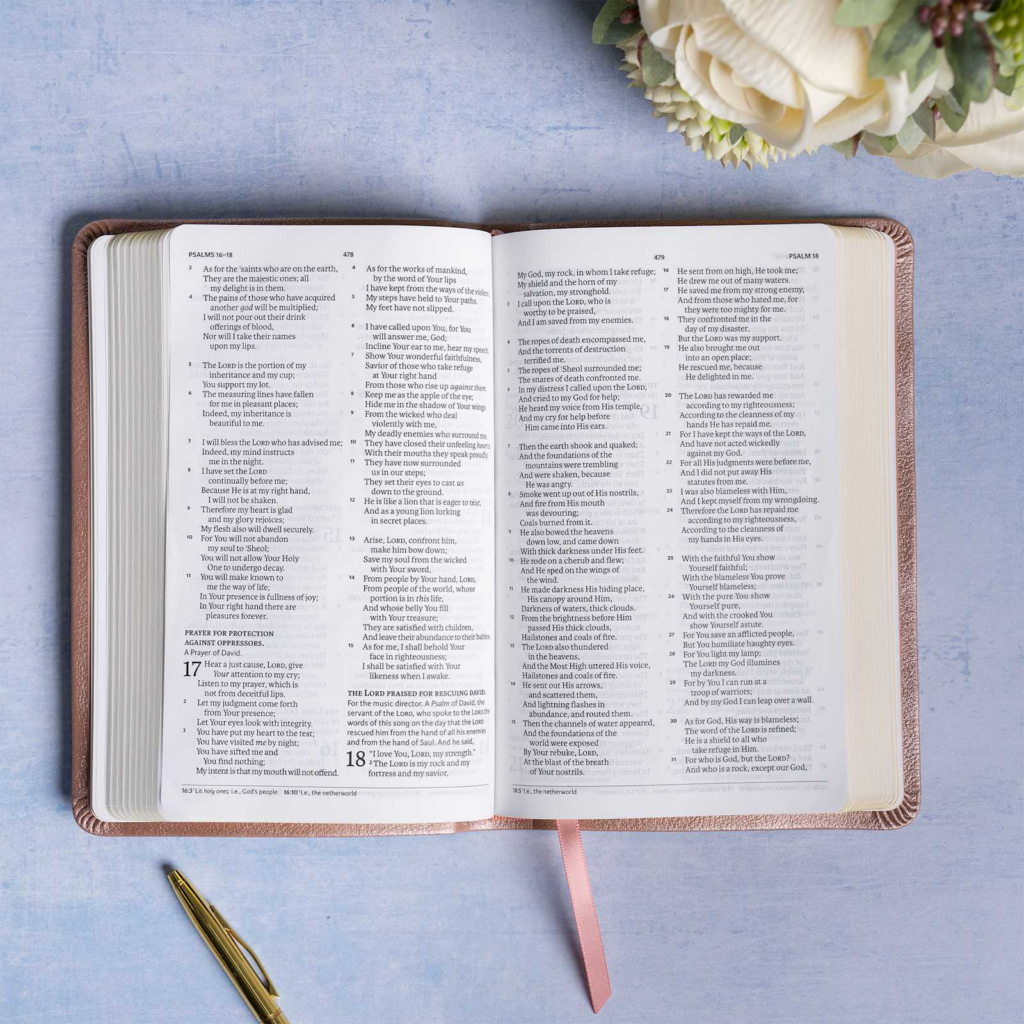 PSALMS 16–18
478
3 As for the ¹saints who are on the earth,
They are the majestic ones; all
my delight is in them.
4 The pains of those who have acquired
another god will be multiplied;
I will not pour out their drink
offerings of blood,
Nor will I take their names
upon my lips.
5 The LORD is the portion of my
inheritance and my cup;
You support my lot.
6 The measuring lines have fallen
for me in pleasant places;
Indeed, my inheritance is
beautiful to me.
7 I will bless the LORD who has advised me;
Indeed, my mind instructs
me in the night.
8 I have set the LORD
continually before me;
Because He is at my right hand,
I will not be shaken.
9 Therefore my heart is glad
and my glory rejoices;
My flesh also will dwell securely.
10 For You will not abandon
my soul to ¹Sheol;
You will not allow Your Holy
One to undergo decay.
11 You will make known to
me the way of life;
In Your presence is fullness of joy;
In Your right hand there are
pleasures forever.
PRAYER FOR PROTECTION
AGAINST OPPRESSORS.
A Prayer of David.
17 Hear a just cause, LORD, give
Your attention to my cry;
Listen to my prayer, which is
not from deceitful lips.
2 Let my judgment come forth
from Your presence;
Let Your eyes look with integrity.
3 You have put my heart to the test;
You have visited me by night;
You have sifted me and
You find nothing;
My intent is that my mouth will not offend.
4 As for the works of mankind,
by the word of Your lips
I have kept from the ways of the violent.
5 My steps have held to Your paths.
My feet have not slipped.
6 I have called upon You, for You
will answer me, God;
Incline Your ear to me, hear my speech.
7 Show Your wonderful faithfulness,
Savior of those who take refuge
at Your right hand
From those who rise up against them.
8 Keep me as the apple of the eye;
Hide me in the shadow of Your wings
9 From the wicked who deal
violently with me,
My deadly enemies who surround me.
10 They have closed their unfeeling hearts,
With their mouths they speak proudly.
11 They have now surrounded
us in our steps;
They set their eyes to cast us
down to the ground.
12 He is like a lion that is eager to tear,
And as a young lion lurking
in secret places.
13 Arise, LORD, confront him,
make him bow down;
Save my soul from the wicked
with Your sword,
14 From people by Your hand, LORD,
From people of the world, whose
portion is in this life,
And whose belly You fill
with Your treasure;
They are satisfied with children,
And leave their abundance to their babies.
15 As for me, I shall behold Your
face in righteousness;
I shall be satisfied with Your
likeness when I awake.
THE LORD PRAISED FOR RESCUING DAVID.
For the music director. A Psalm of David, the
servant of the LORD, who spoke to the LORD the
words of this song on the day that the LORD
rescued him from the hand of all his enemies
and from the hand of Saul. And he said,
18 "I love You, LORD, my strength."
2 The LORD is my rock and my
fortress and my savior,
16:3 ¹Lit holy ones; i.e., God's people 16:10 ¹I.e., the netherworld
479
PSALM 18
My God, my rock, in whom I take refuge;
My shield and the horn of my
salvation, my stronghold.
3 I call upon the LORD, who is
worthy to be praised,
And I am saved from my enemies.
4 The ropes of death encompassed me,
And the torrents of destruction
terrified me.
5 The ropes of ¹Sheol surrounded me;
The snares of death confronted me.
6 In my distress I called upon the LORD,
And cried to my God for help;
He heard my voice from His temple,
And my cry for help before
Him came into His ears.
7 Then the earth shook and quaked;
And the foundations of the
mountains were trembling
And were shaken, because
He was angry.
8 Smoke went up out of His nostrils,
And fire from His mouth
was devouring;
Coals burned from it.
9 He also bowed the heavens
down low, and came down
With thick darkness under His feet.
10 He rode on a cherub and flew;
And He sped on the wings of
the wind.
11 He made darkness His hiding place,
His canopy around Him,
Darkness of waters, thick clouds.
12 From the brightness before Him
passed His thick clouds,
Hailstones and coals of fire.
13 The LORD also thundered
in the heavens,
And the Most High uttered His voice,
Hailstones and coals of fire.
14 He sent out His arrows,
and scattered them,
And lightning flashes in
abundance, and routed them.
15 Then the channels of water appeared,
And the foundations of the
world were exposed
By Your rebuke, LORD,
At the blast of the breath
of Your nostrils.
16 He sent from on high, He took me;
He drew me out of many waters.
17 He saved me from my strong enemy,
And from those who hated me, for
they were too mighty for me.
18 They confronted me in the
day of my disaster,
But the LORD was my support.
19 He also brought me out
into an open place;
He rescued me, because
He delighted in me.
20 The LORD has rewarded me
according to my righteousness;
According to the cleanness of my
hands He has repaid me.
21 For I have kept the ways of the LORD,
And have not acted wickedly
against my God.
22 For all His judgments were before me,
And I did not put away His
statutes from me.
23 I was also blameless with Him,
And I kept myself from my wrongdoing.
24 Therefore the LORD has repaid me
according to my righteousness,
According to the cleanness
of my hands in His eyes.
25 With the faithful You show
Yourself faithful;
With the blameless You prove
Yourself blameless;
26 With the pure You show
Yourself pure,
And with the crooked You
show Yourself astute.
27 For You save an afflicted people,
But You humiliate haughty eyes.
28 For You light my lamp;
The LORD my God illumines
my darkness.
29 For by You I can run at a
troop of warriors;
And by my God I can leap over a wall.
30 As for God, His way is blameless;
The word of the LORD is refined;
He is a shield to all who
take refuge in Him.
31 For who is God, but the LORD?
And who is a rock, except our God,
18:5 ¹I.e., the netherworld